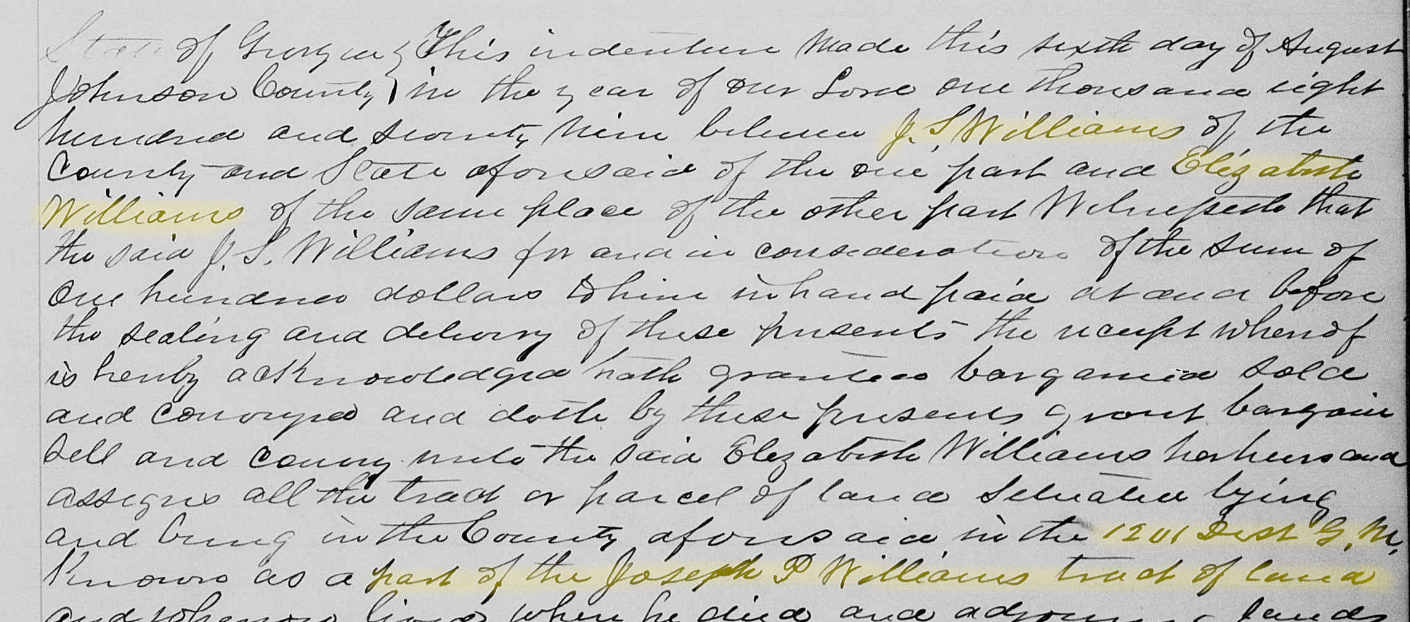 State of Georgia } This indenture made this sixth day of August
Johnson County } in the year of our Lord one thousand eight
hundred and seventy nine between J. S. Williams of the
County and State aforesaid of the one part and Elizabeth
Williams of the same place of the other part Witnesseth that
the said J. S. Williams for and in consideration of the sum of
One hundred dollars to him in hand paid at and before
the sealing and delivery of these presents the receipt whereof
is hereby acknowledged hath granted bargained sold
and conveyed and doth by these presents grant bargain
sell and convey unto the said Elizabeth Williams her heirs and
assigns all the tract or parcel of land situated lying
and being in the County aforesaid in the 1201 Dist G. M.
Known as a part of the Joseph P Williams tract of land
and whereon lived when he died and adjoining lands